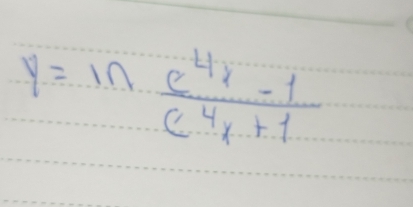 y = ln (e^4x - 1)/(e^4x + 1)